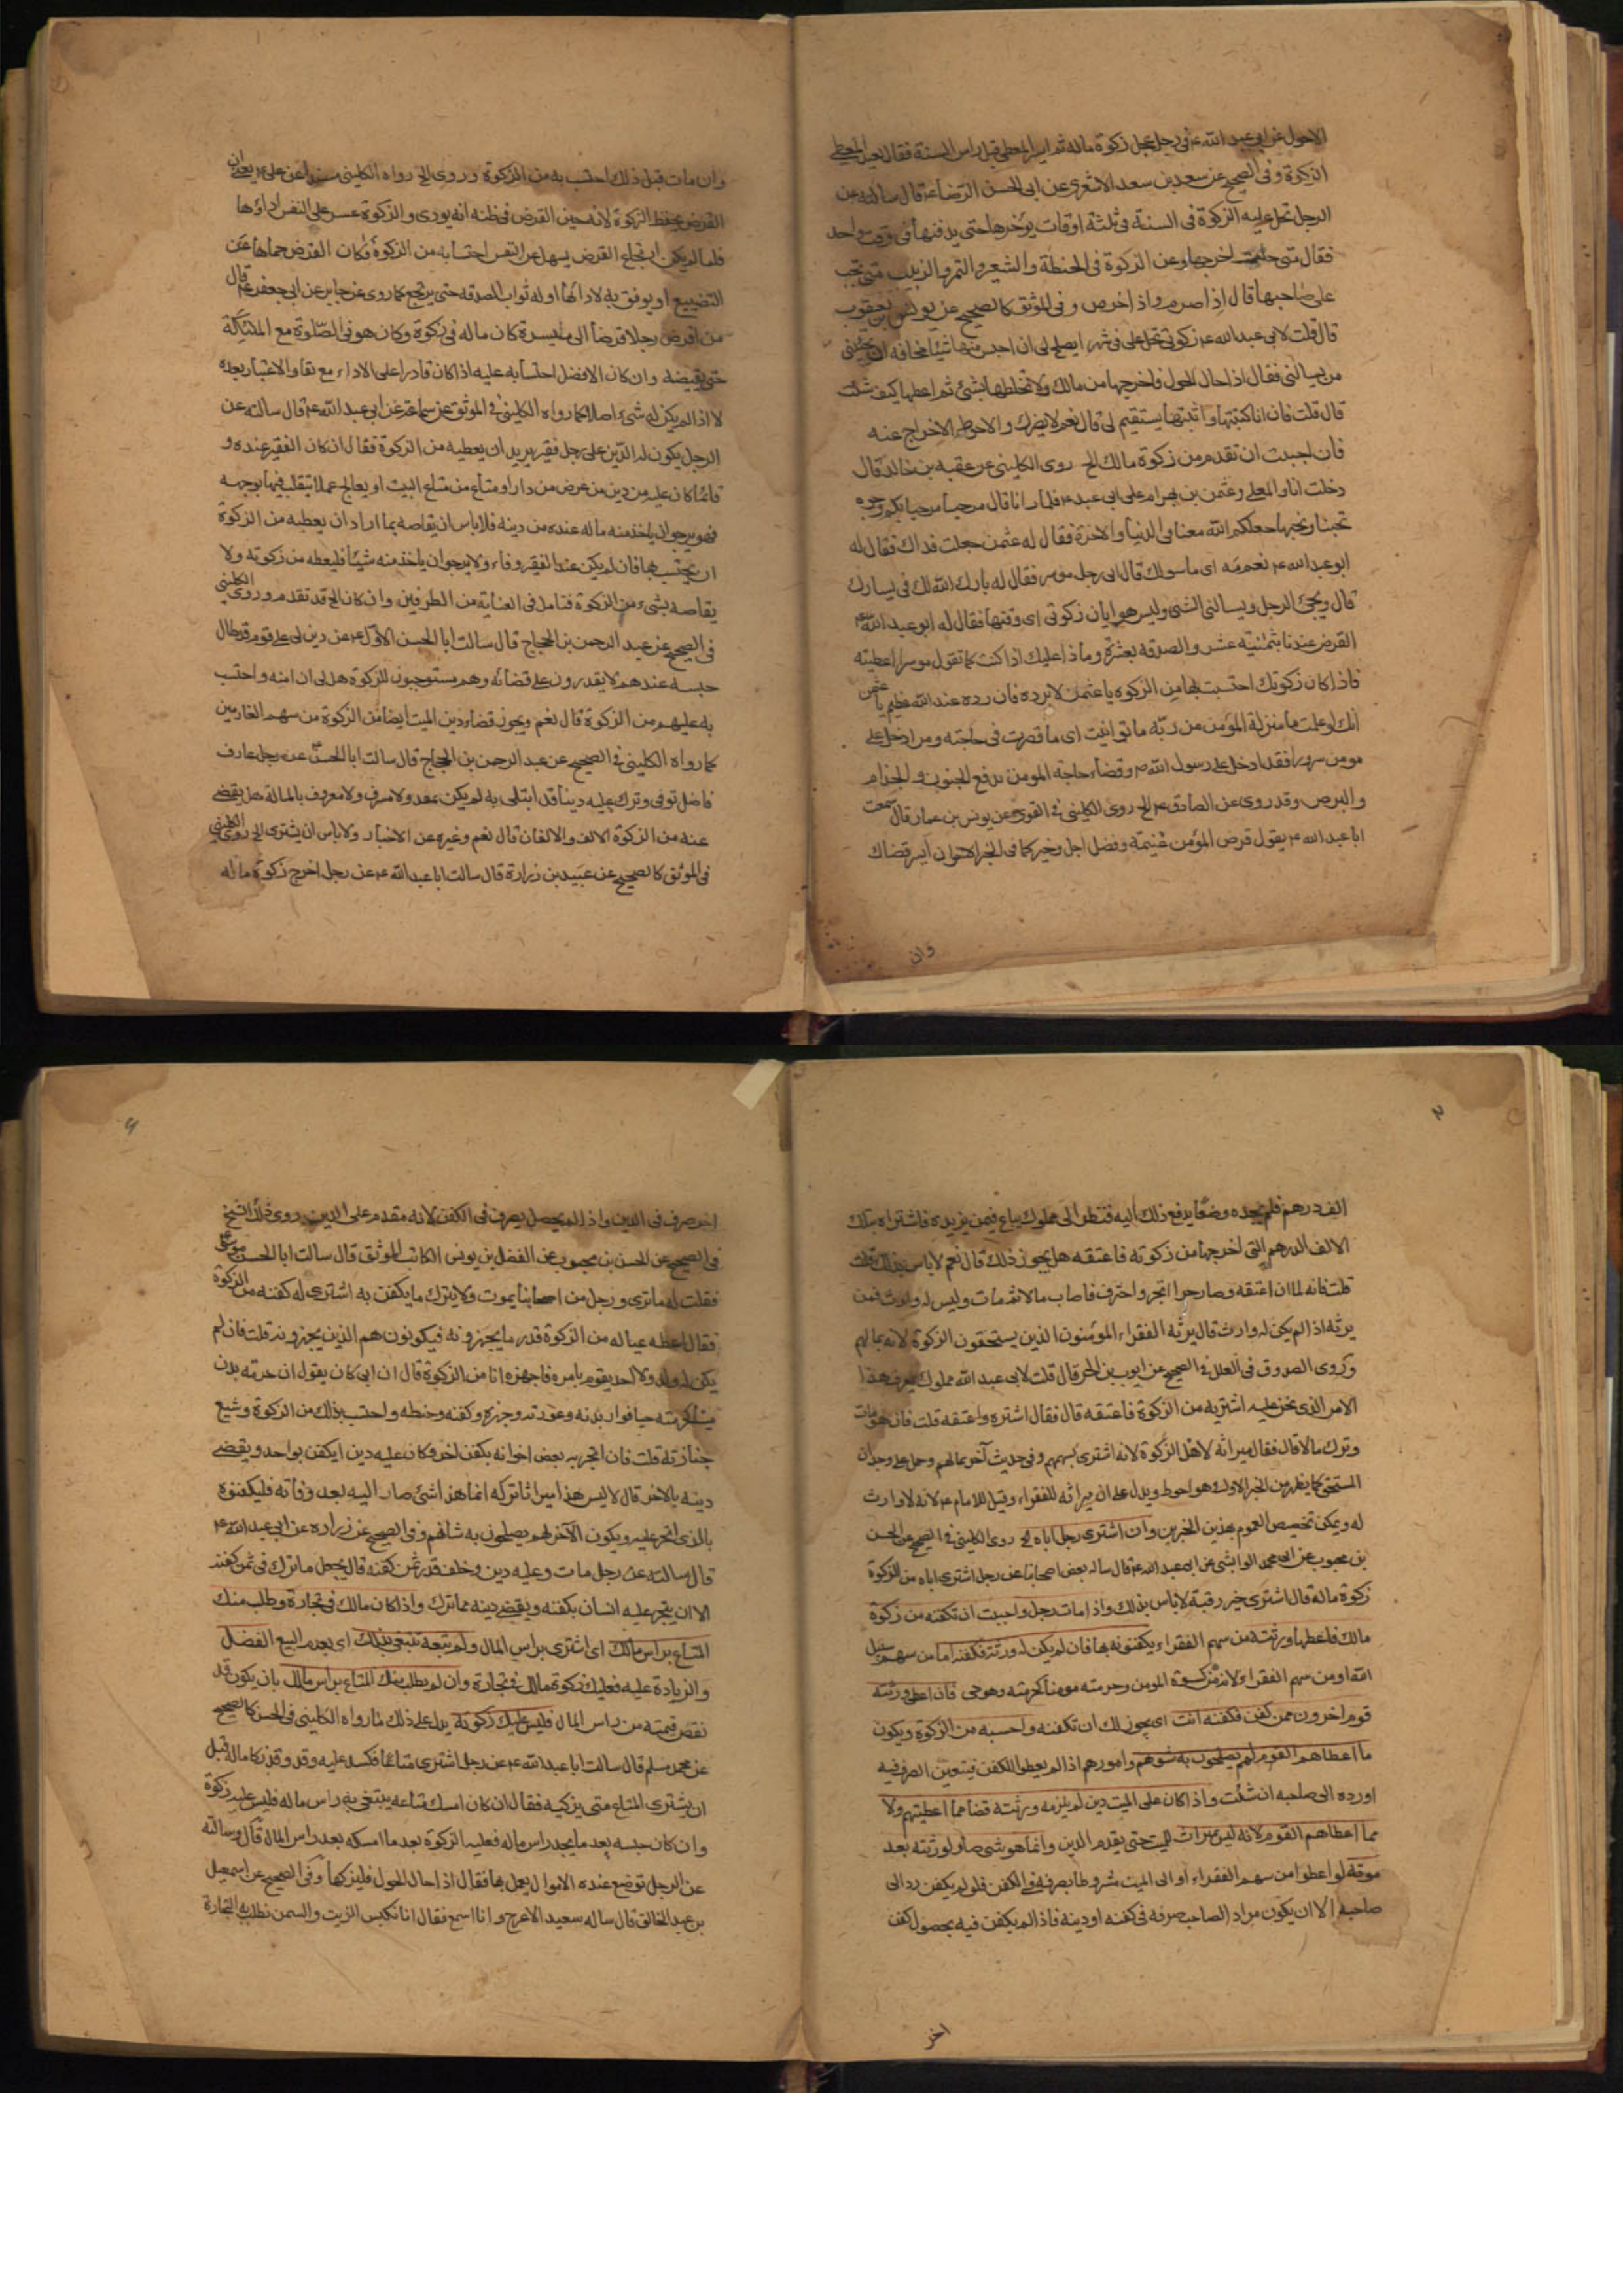 الاحول عن ابى عبد الله ع فى رجل عجل زكوة ماله ثم ايسر المعطى قبل راس السنة فقال يعيد المعطى
الزكوة وفى الصحيح عن سعد بن سعد الاشعرى عن ابى الحسن الرضا ع قال سالته عن
الرجل تحل عليه الزكوة فى السنة فى ثلثة اوقات يؤخرها حتى يدفعها فى وقت واحد
فقال متى حلت اخرجها وعن الزكوة فى الحنطة والشعير والتمر والزبيب متى تجب
على صاحبها قال اذا صرم واذا خرص وفى الموثق كالصحيح عن يونس بن يعقوب
قال قلت لابى عبد الله ع زكوتى تحل على فى شهر ايصلح لى ان احبس منها شيئا مخافة ان يجيئنى
من يسالنى فقال اذا حال الحول فاخرجها من مالك ولا تخلطها بشئ ثم اعطها كيف شئت
قال قلت فان انا كتبتها واثبتها يستقيم لى قال نعم لا يضرك والاحوط الاخراج عنه
فان احببت ان تقدم من زكوة مالك الخ روى الكلينى عن عقبه بن خالد قال
دخلت انا والمعلى وعثمن بن بهرام على ابى عبد ع فلما رانا قال مرحبا مرحبا بكم وجوه
تحبنا ونحبها جعلكم الله معنا فى الدنيا والاخرة فقال له عثمن جعلت فداك فقال له
ابو عبد الله ع نعم مه اى ما سولك قال انى رجل موسر فقال له بارك الله لك فى يسارك
قال ويجئ الرجل ويسالنى الشئ وليس هو ابان زكوتى اى وقتها فقال له ابو عبد الله ع
القرض عندنا بثمنية عشر والصدقه بعشرة وماذا عليك اذا كنت كما تقول موسرا اعطيته
فاذا كان زكوتك احتسبت بها من الزكوه يا عثمن لا ترده فان رده عند الله عظيم يا عثمن
انك لو علمت ما منزلة المؤمن من ربه ما توانيت اى ما قصرت فى حاجته ومن ادخل على
مومن سرورا فقد ادخل على رسول الله ص وقضاء حاجة المومن يدفع الجنون والجذام
والبرص وقد روى عن الصادق ع الخ روى الكلينى فى القوى عن يونس بن عمار قال سمعت
ابا عبد الله ع يقول قرض المؤمن غنيمة وفضل اجل وخير كما فى الخبر الاخر ان ايسر قضاك
وان
وان مات قبل ذلك احتسب به من الزكوة وروى الخ رواه الكلينى مسندا عن على ع يعنى ان
القرض يحفظ الزكوة لانه حين القرض فى ظنه انه يودى والزكوة عسر على النفس اداؤها
فلما لم يكن ارتجاع القرض يسهل عن النفس احتسابه من الزكوة فكان القرض حماها عن
التضييع او يوفق به لادائها او له ثواب الصدقه حتى يرتجع كما روى عن جابر عن ابى جعفر ع قال
من اقرض رجلا قرضا الى ميسرة كان ماله فى زكوة وكان هو فى الصلوة مع الملئكة
حتى يقبضه وان كان الافضل احتسابه عليه اذا كان قادرا على الاداء مع بقاء الاعتبار بعده
لا اذا لم يكن له شئ اصلا كما رواه الكلينى فى الموثق عن سماعة عن ابى عبد الله ع قال سالته عن
الرجل يكون له الدين على رجل فقير يريد ان يعطيه من الزكوة فقال ان كان الفقير عنده و
فاء بما كان عليه من دين من عرض من دار او متاع من متاع البيت او يعالج عملا يتقلب فيها بوجهه
فهو يرجو ان ياخذ منه ماله عنده من دينه فلا باس ان يقاصه بما اراد ان يعطيه من الزكوة
او يحتسب بها فان لم يكن عند الفقير وفاء ولا يرجو ان ياخذ منه شيئا فليعطه من زكوته ولا
يقاصه بشئ من الزكوة فتامل فى العناية من الطرفين وان كان الخ قد تقدم وروى الكلينى
فى الصحيح عن عبد الرحمن بن الحجاج قال سالت ابا الحسن الاول ع عن دين لى على قوم قد طال
حبسه عندهم لا يقدرون على قضائه وهم مستوجبون للزكوة هل لى ان ادعه واحتسب
به عليهم من الزكوة قال نعم ويجوز قضاء دين الميت ايضا من الزكوة من سهم الغارمين
كما رواه الكلينى فى الصحيح عن عبد الرحمن بن الحجاج قال سالت ابا الحسن ع عن رجل عارف
فاضل توفى وترك عليه دينا قد ابتلى به لم يكن بمفسد ولا مسرف ولا معروف بالمسالة هل يقضى
عنه من الزكوة الالف والالفان قال نعم وغيره عن الاخبار ولا باس ان يشترى الخ روى الكلينى
فى الموثق كالصحيح عن عبيد بن زرارة قال سالت ابا عبد الله ع عن رجل اخرج زكوة ماله
٢
الف درهم فلم يجد موضعا يدفع ذلك اليه فنظر الى مملوك يباع فيمن يزيده فاشتراه بتلك
الالف الدرهم التى اخرجها من زكوته فاعتقه هل يجوز ذلك قال نعم لا باس بذلك قلت
قلت فانه لما ان اعتقه وصار حرا اتجر واحترف فاصاب مالا ثم مات وليس له وارث فمن
يرثه اذا لم يكن له وارث قال يرثه الفقراء المؤمنون الذين يستحقون الزكوة لانه بمالهم
وروى الصدوق فى العلل فى الصحيح عن ايوب بن الحر قال قلت لابى عبد الله مملوك يعرف هذا
الامر الذى نحن عليه اشتريه من الزكوة فاعتقه قال فقال اشتره واعتقه قلت فان هو مات
وترك مالا قال فقال ميراثه لاهل الزكوة لانه اشترى بسهمهم وفى حديث آخر بمالهم وحمل على وجدان
المستحق كما يظهر من الخبر الاول وهو احوط ويدل على ان ميراثه للفقراء وقيل للامام ع لانه لا وارث
له ويمكن تخصيص العموم بهذين الخبرين وان اشترى رجل اباه الخ روى الكلينى فى الصحيح عن الحسن
بن محبوب عن ابى محمد الوابشى عن ابى عبد الله ع قال ساله بعض اصحابنا عن رجل اشترى اباه من الزكوة
زكوة ماله قال اشترى خير رقبة لا باس بذلك واذا مات رجل واحببت ان تكفنه من زكوة
مالك فاعطها ورثته من سهم الفقراء يكفنونه بها فان لم يكن له ورثة فكفنه اما من سهم سبيل
الله او من سهم الفقراء لانه من كسوة المومن وحرمته مومنا كحرمته وهو حى فان اعطى ورثته
قوم اخرون ممن كفن فكفنه انت اى يجوز لك ان تكفنه واحسبه من الزكوة ويكون
ما اعطاهم القوم لهم يصلحون به شونهم وامورهم اذا لم يعطوا للكفن فيتعين الصرف فيه
او رده الى صاحبه ان شئت واذا كان على الميت دين لم يلزمه ورثته قضاء مما اعطيتهم ولا
مما اعطاهم القوم لانه ليس بميراث للميت حتى يقدم الدين وانما هو شئ صار لورثته بعد
موته لو اعطوا من سهم الفقراء او الى الميت بشروط بصرفه فى الكفن فلو لم يكفن رد الى
صاحبه الا ان يكون مراد الصاحب صرفه فى كفنه او دينه فاذا لم يكفن فيه بحصول كفن
اخر
اخر صرف فى الدين واذا لم يحصل يصرف فى الكفن لانه مقدم على الدين روى ذلك الشيخ
فى الصحيح عن الحسن بن محبوب عن الفضل بن يونس الكاتب الموثق قال سالت ابا الحسن موسى ع
فقلت له ما ترى فى رجل من اصحابنا يموت ولا يترك ما يكفن به اشترى له كفنه من الزكوة
فقال اعطه عياله من الزكوة قدر ما يجهزونه فيكونون هم الذين يجهزونه قلت فان لم
يكن له ولد ولا احد يقوم بامره فاجهزه انا من الزكوة قال ان ابى كان يقول ان حرمة بدن
ميتا كحرمته حيا فوار بدنه وعورته وجهزه وكفنه وحنطه واحتسب بذلك من الزكوة وشيع
جنازته قلت فان اتجر به بعض اخوانه بكفن اخر وكان عليه دين ايكفن بواحد ويقضى
دينه بالاخر قال لا ليس هذا ميراثا تركه انما هذا شئ صار اليه بعد وفاته فليكفنوه
بالذى اتجر عليه ويكون الآخر لهم يصلحون به شانهم وفى الصحيح عن زراره عن ابى عبد الله ع
قال سالته عن رجل مات وعليه دين وخلف قدر ثمن كفنه قال يجعل ما ترك فى ثمن كفنه
الا ان يتجر عليه انسان بكفنه ويقضى دينه مما ترك واذا كان مالك فى تجارة وطلب منك
المتاع براس مالك اى اشترى براس المال ولم تبعه تبتغى بذلك اى بعدم البيع الفضل
والزيادة عليه فعليك زكوة مالك فى تجارة وان لم يطلب منك المتاع براس مالك بان يكون قد
نقص قيمته من راس المال فليس عليك زكوته يدل على ذلك ما رواه الكلينى فى الحسن كالصحيح
عن محمد مسلم قال سالت ابا عبد الله ع عن رجل اشترى متاعا فكسد عليه وقد وقد زكا ماله قبل
ان يشترى المتاع متى يزكيه فقال ان كان امسك متاعه يبتغى به راس ماله فليس عليه زكوة
وان كان حبسه بعد ما يجد راس ماله فعليه الزكوة بعد ما امسكه بعد راس المال قال وسالته
عن الرجل توضع عنده الاموال يعمل بها فقال اذا حال الحول فليزكها وفى الصحيح عن اسمعيل
بن عبد الخالق قال ساله سعيد الاعرج وانا اسمع فقال انا نكبس الزيت والسمن نطلب به التجارة